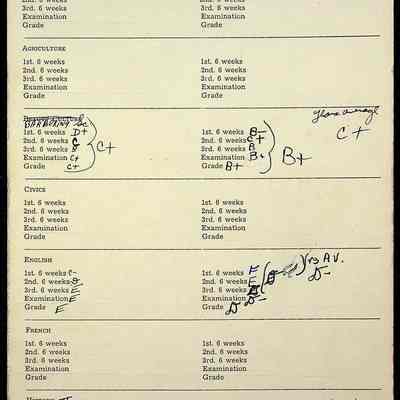 2nd. 6 weeks 2nd. 6 weeks
3rd. 6 weeks 3rd. 6 weeks
Examination Examination
Grade Grade
AGRICULTURE
1st. 6 weeks 1st. 6 weeks
2nd. 6 weeks 2nd. 6 weeks
3rd. 6 weeks 3rd. 6 weeks
Examination Examination
Grade Grade
average
1st. 6 weeks D+ 1st. 6 weeks B- C+
2nd. 6 weeks C 2nd. 6 weeks C+
3rd. 6 weeks B C+ 3rd. 6 weeks B B+
Examination C+ Examination B+
Grade C+ Grade B+
CIVICS
1st. 6 weeks 1st. 6 weeks
2nd. 6 weeks 2nd. 6 weeks
3rd. 6 weeks 3rd. 6 weeks
Examination Examination
Grade Grade
ENGLISH
1st. 6 weeks C- 1st. 6 weeks E Yrs AV.
2nd. 6 weeks D 2nd. 6 weeks E D-
3rd. 6 weeks E 3rd. 6 weeks
Examination E Examination D-
Grade E Grade D
FRENCH
1st. 6 weeks 1st. 6 weeks
2nd. 6 weeks 2nd. 6 weeks
3rd. 6 weeks 3rd. 6 weeks
Examination Examination
Grade Grade